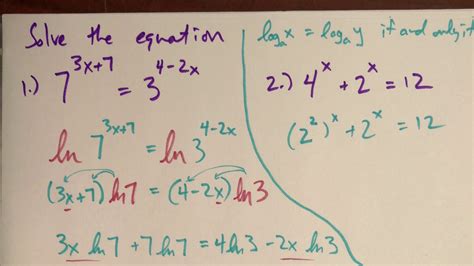 Solve the equation
1.) 7^(3x+7) = 3^(4-2x)
ln 7^(3x+7) = ln 3^(4-2x)
(3x+7) ln 7 = (4-2x) ln 3
3x ln 7 + 7 ln 7 = 4 ln 3 - 2x ln 3
logₐx = logₐy if and only if
2.) 4^x + 2^x = 12
(2^2)^x + 2^x = 12